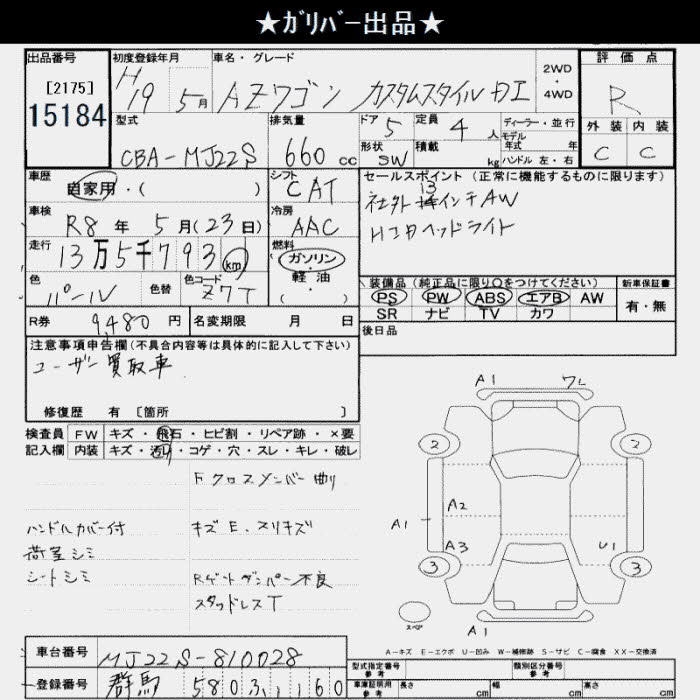 ★ガリバー出品★
出品番号 初度登録年月 車名・グレード 2WD・4WD 評価点
[2175]
15184
H19 5月 AZワゴン カスタムスタイル DI R
型式 排気量 ドア 定員 ディーラー・並行 外装 内装
CBA-MJ22S 660cc 5 4人 モデル年式 年 C C
形状 積載 kg ハンドル 左・右
SW
車歴 シフト セールスポイント(正常に機能するものに限ります)
自家用・( ) CAT 社外13インチAW
車検 冷房 HIDヘッドライト
R8年5月(23日) AAC
走行 燃料
13万5千793km ガソリン・軽油
色 色替 色コード 装備品(純正品に限り○をつけてください) 新車保証書
パール Z7T PS PW ABS エアB AW 有・無
SR ナビ TV カワ
R券 9,480円 名変期限 月 日 後日品
注意事項申告欄(不具合内容等は具体的に記入して下さい)
ユーザー買取車
修復歴 有 [箇所 ]
検査員 FW キズ・飛石・ヒビ割・リペア跡・×要
記入欄 内装 キズ・汚れ・コゲ・穴・スレ・キレ・破レ
Fクロスメンバー曲り
ハンドルカバー付 キズE、スリキズ
荷室シミ
シートシミ Rゲートダンパー不良
スタッドレスT
A1 ワレ
2 2
A2
A1
A3 U1
3 3
スペア
A1
A-キズ E-エクボ U-凹み W-補修跡 S-サビ C-腐食 XX-交換済
車台番号 MJ22S-810028
登録番号 群馬 580 3 1160
型式指定番号 参考 類別区分番号 参考
車庫証明用 参考 長さ cm 幅 cm 高さ cm